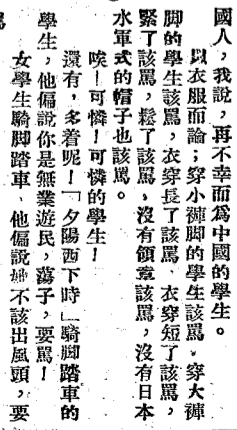 國人，我說，再不幸而為中國的學生。
以衣服而論；穿小褲脚的學生該罵，穿大褲
脚的學生該罵，衣穿長了該罵，衣穿短了該罵，
緊了該罵，鬆了該罵，沒有領章該罵，沒有日本
水軍式的帽子也該罵。
唉！可憐！可憐的學生！
還有，多着呢！「夕陽西下時」騎脚踏車的
學生，他偏說你是無業遊民，蕩子，要罵！
女學生騎脚踏車，他偏說她不該出風頭，要